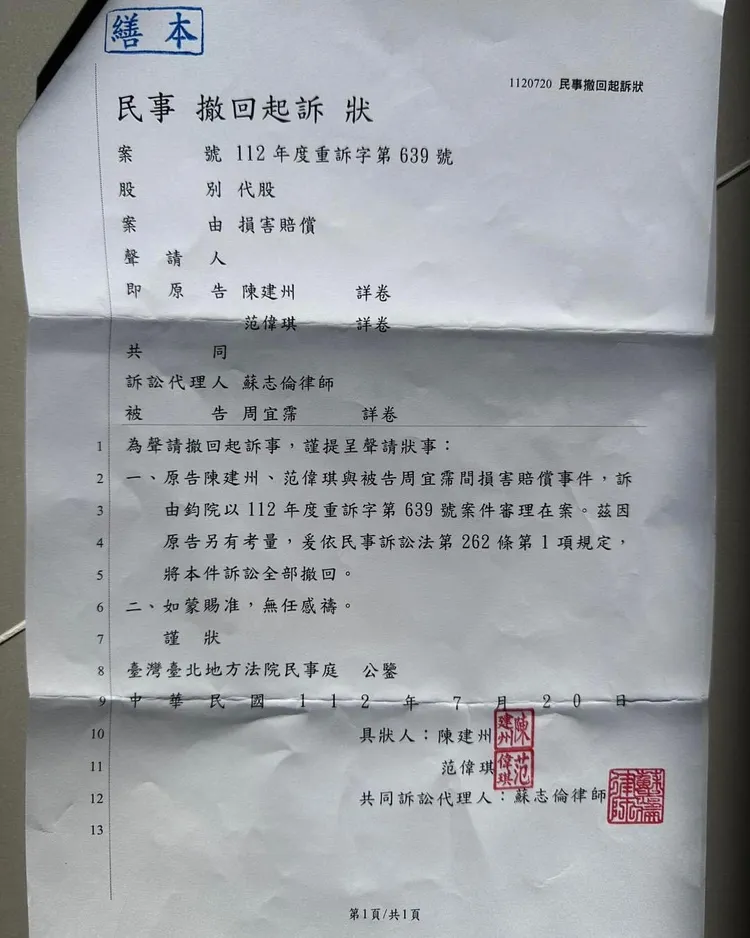 繕本
1120720 民事撤回起訴狀
民事 撤回起訴 狀
案 號 112 年度重訴字第 639 號
股 別 代股
案 由 損害賠償
聲 請 人
即 原 告 陳建州 詳卷
范偉琪 詳卷
共 同
訴訟代理人 蘇志倫律師
被 告 周宜霈 詳卷
1 為聲請撤回起訴事，謹提呈聲請狀事：
2 一、原告陳建州、范偉琪與被告周宜霈間損害賠償事件，訴
3 由鈞院以 112 年度重訴字第 639 號案件審理在案。茲因
4 原告另有考量，爰依民事訴訟法第 262 條第 1 項規定，
5 將本件訴訟全部撤回。
6 二、如蒙賜准，無任感禱。
7 謹 狀
8 臺灣臺北地方法院民事庭 公鑒
9 中 華 民 國 1 1 2 年 7 月 2 0 日
10 具狀人：陳建州 陳建州
11 范偉琪 范偉琪
12 共同訴訟代理人：蘇志倫律師
13
第1頁/共1頁